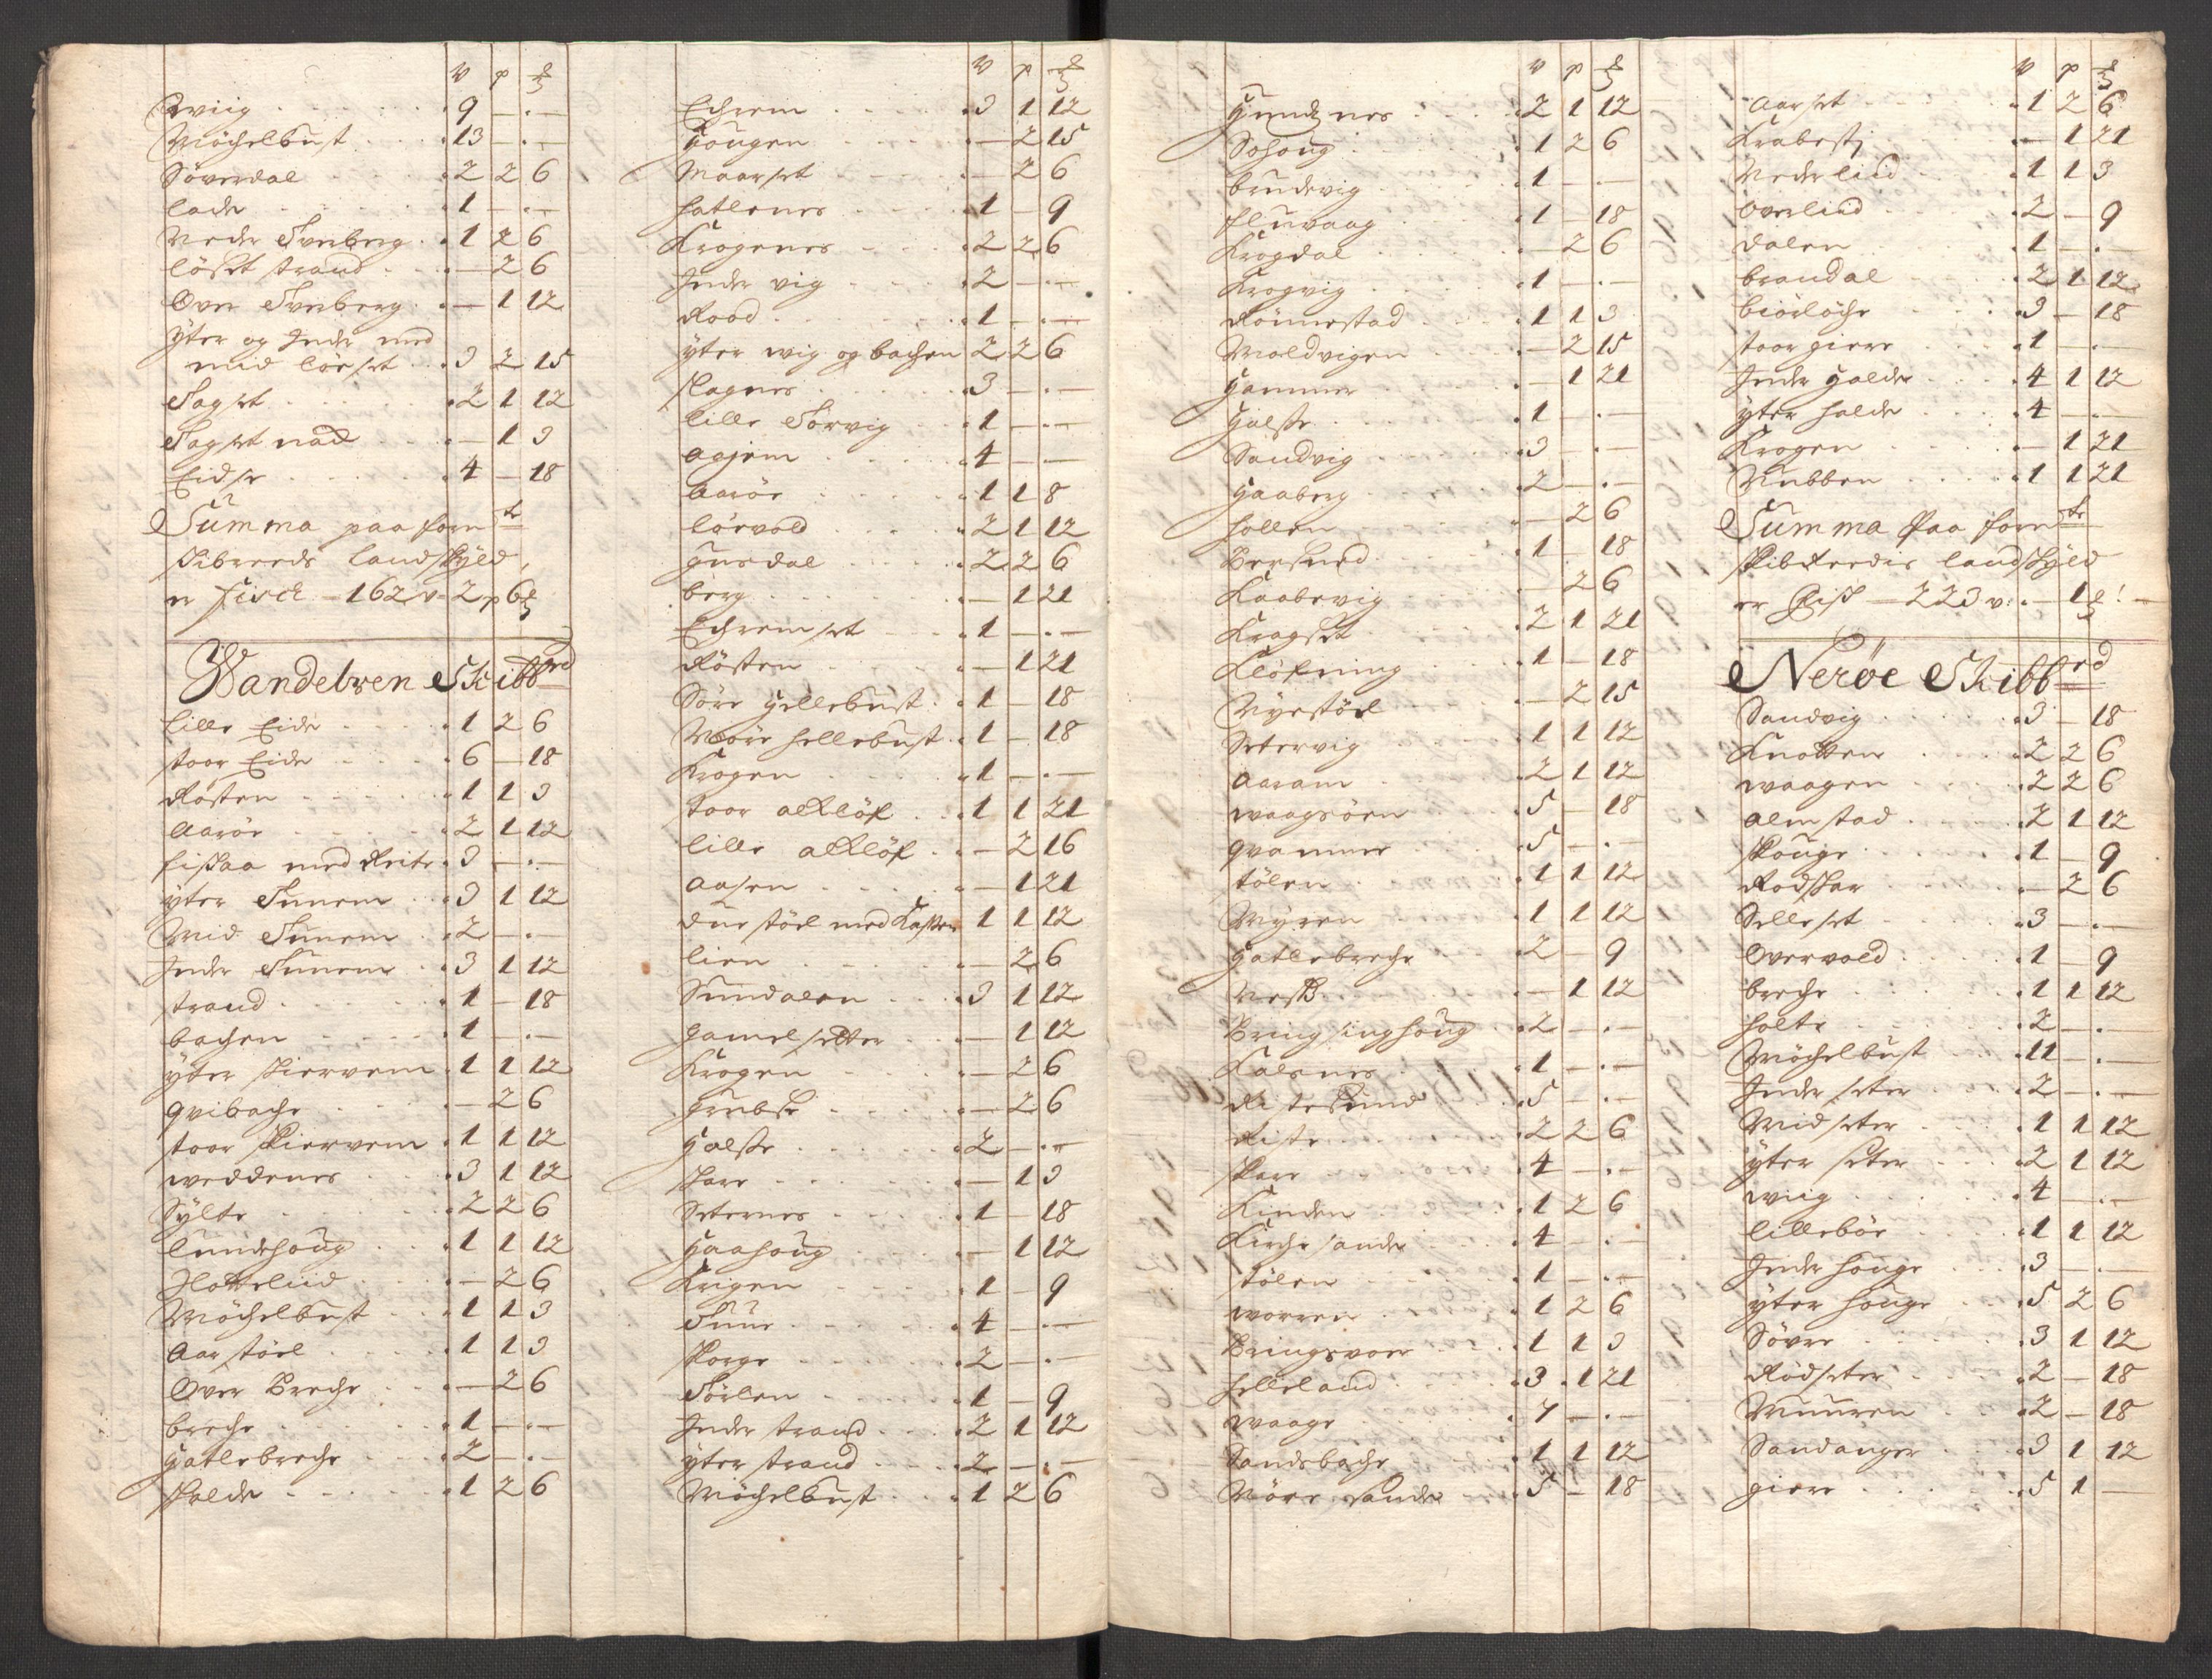 V p ℔
Wiig . . . . . . 9 — . —
Möchelbust . . . 13 — . —
Söverdal . . . 2 2 6
lade . . . . 1 — . —
Neder Svenberg . 1 2 6
löset strand . . — 2 6
Over Svenberg . — 1 12
yter og Inder med
mid lörset . . 3 2 15
Sagset . . . . 2 1 12
Sagset nad . . — 1 3
Eidse . . . . 4 — 18
Summa paa forn te
skibreeds landskÿld,
er fisch — 162 v 2 p 6 ℔
Wandelven Skibbrd
lille Eide . . . 1 2 6
stoor Eide . . . 6 — 18
Rösten . . . . 1 1 3
Aaröe . . . . 2 1 12
fiskaa med Reite . 3 — . —
yter Sunem . . 3 1 12
Mid Sunem . . 2 — . —
Inder Sunem . . 3 1 12
strand . . . . 1 — 18
bachen . . . . 1 — . —
yter skiervem . 1 1 12
qvibache . . . — 2 6
stoor skiervem . 1 1 12
weddenes . . . 3 1 12
Sÿlte . . . . 2 2 6
lundehoug . . . 1 1 12
Flotteliid . . . — 2 6
Möchelbust . . 1 1 3
Aarstöel . . . 1 1 3
Over Breche . . — 2 6
breche . . . . 1 — . —
Hatlebreche . . 2 — . —
skalde . . . . 1 2 6
V p ℔
Echrem . . . . 3 1 12
Hougen . . . . — 2 15
Maarset . . . — 2 6
hatlenes . . . 1 — 9
Krogenes . . . 2 2 6
Inder vig . . . 2 — . —
Rood . . . . . 1 — . —
yter wig og bachen 2 2 6
slagnes . . . . 3 — . —
lille Sörvig . . 1 — . —
aajem . . . . 4 — . —
Aaröe . . . . 1 1 8
lörvold . . . . 2 1 12
gusdal . . . . 2 2 6
berg . . . . . — 1 21
Echremset . . . 1 — . —
Rösten . . . . — 1 21
Söre Hellebust . 1 — 18
Nöre hellebust . 1 — 18
Krogen . . . . 1 — . —
stoor alklöf . . 1 1 21
lille alklöf . . — 2 16
Aasen . . . . — 1 21
duestöel med Kasten 1 1 12
lien . . . . . — 2 6
Sundalen . . . 3 1 12
gamelsetter . . — 1 12
Krogen . . . . — 2 6
grubse . . . . — 2 6
Halse . . . . 2 — . —
skare . . . . . — 1 3
Seternes . . . 1 — 18
Haahoug . . . — 1 12
Krigen . . . . 1 — 9
Tuue . . . . . 4 — . —
skorge . . . . 2 — . —
Sörlen . . . . 1 — 9
Inder strand . . 2 1 12
yter strand . . 2 — . —
Möchelbust . . 1 2 6
V p ℔
Gundznes . . . 2 1 12
Sohoug . . . . 1 2 6
brudevig . . . 1 — . —
fluvaag . . . . 1 — 18
Krogdal . . . . — 2 6
Krogvig . . . . 1 — . —
Rönnestad . . . 1 1 3
Moldvigen . . . — 2 15
Hammer . . . — 1 21
Halse . . . . . 1 — . —
Sandvig . . . . 3 — . —
Haaberg . . . . 2 — . —
hollen . . . . — 2 6
Bersund . . . . 1 — 18
Kaabevig . . . — 2 6
Kragset . . . . 2 1 21
Klöfning . . . 1 — 18
Nÿestöel . . . — 2 15
Setervig . . . 1 1 12
Aaram . . . . 2 1 12
waagsöen . . . 5 — 18
qvammen . . . 5 — . —
stölen . . . . 1 1 12
Mÿren . . . . 1 1 12
Hatlebreche . . 2 — 9
Nest . . . . . — 1 12
Bringsinghoug . 2 — . —
Kalsnes . . . . 1 — . —
Ristesund . . . 5 — . —
Riste . . . . . 2 2 6
skare . . . . . 4 — . —
Kinden . . . . 1 2 6
Kirchesande . . 4 — . —
stölen . . . . 1 — . —
worren . . . . 1 2 6
Bringsvoer . . 1 1 3
helleland . . . 3 1 21
waage . . . . 7 — . —
Sandsbache . . 1 1 12
Nöre sande . . 5 — 18
V p ℔
Aarset . . . . 1 2 6
Krabesti . . . — 1 21
Nederliid . . . 1 1 3
Overliid . . . . 2 — 9
dalen . . . . . 1 — . —
brandal . . . . 2 1 12
biörlöche . . . 3 — 18
stoor giere . . 1 — . —
Inder Halde . . 4 1 12
yter halde . . . 4 — . —
Krogen . . . . — 1 21
Nubben . . . . 1 1 21
Summa Paa forn te
skibReedis landskÿld
er Fisk — 223 v: . — 1 ℔! —
Nerøe Skibbrd
Sandvig . . . . 3 — 18
Knotten . . . . 2 2 6
waagen . . . . 2 2 6
almstad . . . . 2 1 12
skouge . . . . 1 — 9
Rodskar . . . . — 2 6
Selleset . . . . 3 — . —
Overvold . . . 1 — 9
breche . . . . 1 1 12
holte . . . . . 2 — . —
Möchelbust . . 11 — . —
Inder seter . . 2 — . —
Midseter . . . 1 1 12
yter seter . . . 2 1 12
wiig . . . . . 4 — . —
lilleböe . . . . 1 1 12
Inder houge . . 3 — . —
yter houge . . . 5 2 6
Sövre . . . . . 3 1 12
Rödseter . . . 2 — 18
Muuren . . . . 2 — 18
Sandanger . . . 3 1 12
giere . . . . . 5 1 —